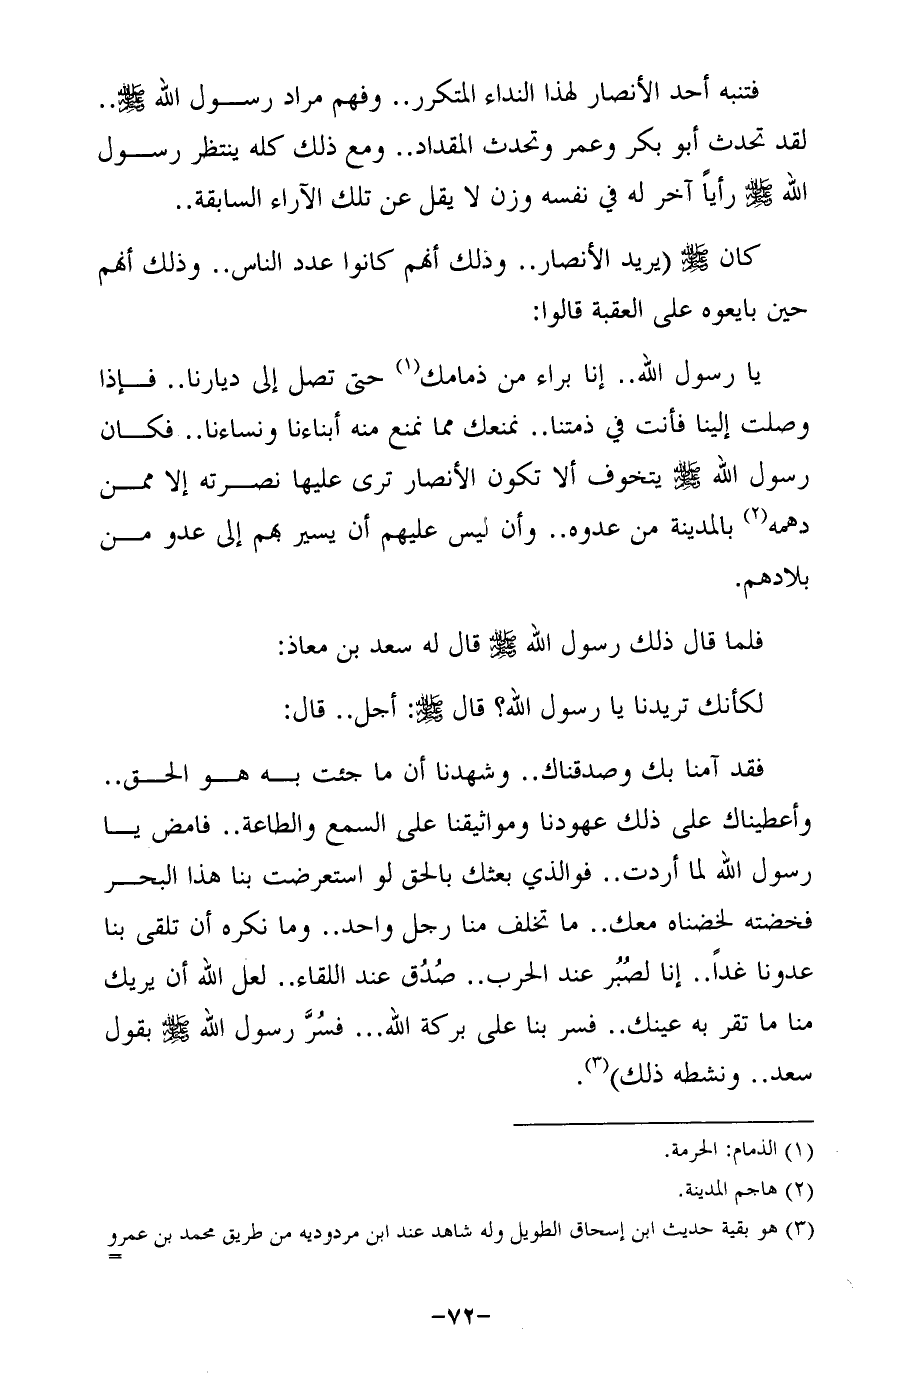 فتنبه أحد الأنصار لهذا النداء المتكرر.. وفهم مراد رسول الله ﷺ..
لقد تحدث أبو بكر وعمر وتحدث المقداد.. ومع ذلك كله ينتظر رسول
الله ﷺ رأياً آخر له في نفسه وزن لا يقل عن تلك الآراء السابقة..
كان ﷺ (يريد الأنصار.. وذلك أنهم كانوا عدد الناس.. وذلك أنهم
حين بايعوه على العقبة قالوا:
يا رسول الله.. إنا براء من ذمامك(١) حتى تصل إلى ديارنا.. فإذا
وصلت إلينا فأنت في ذمتنا.. نمنعك مما نمنع منه أبناءنا ونساءنا.. فكان
رسول الله ﷺ يتخوف ألا تكون الأنصار ترى عليها نصرته إلا ممن
دهمه(٢) بالمدينة من عدوه.. وأن ليس عليهم أن يسير بهم إلى عدو من
بلادهم.
فلما قال ذلك رسول الله ﷺ قال له سعد بن معاذ:
لكأنك تريدنا يا رسول الله؟ قال ﷺ: أجل.. قال:
فقد آمنا بك وصدقناك.. وشهدنا أن ما جئت به هو الحق..
وأعطيناك على ذلك عهودنا ومواثيقنا على السمع والطاعة.. فامض يا
رسول الله لما أردت.. فوالذي بعثك بالحق لو استعرضت بنا هذا البحر
فخضته لخضناه معك.. ما تخلف منا رجل واحد.. وما نكره أن تلقى بنا
عدونا غداً.. إنا لصُبُر عند الحرب.. صُدُق عند اللقاء.. لعل الله أن يريك
منا ما تقر به عينك.. فسر بنا على بركة الله... فسُرَّ رسول الله ﷺ بقول
سعد.. ونشطه ذلك)(٣).
(١) الذمام: الحرمة.
(٢) هاجم المدينة.
(٣) هو بقية حديث ابن إسحاق الطويل وله شاهد عند ابن مردوديه من طريق محمد بن عمرو
=
-٧٢-